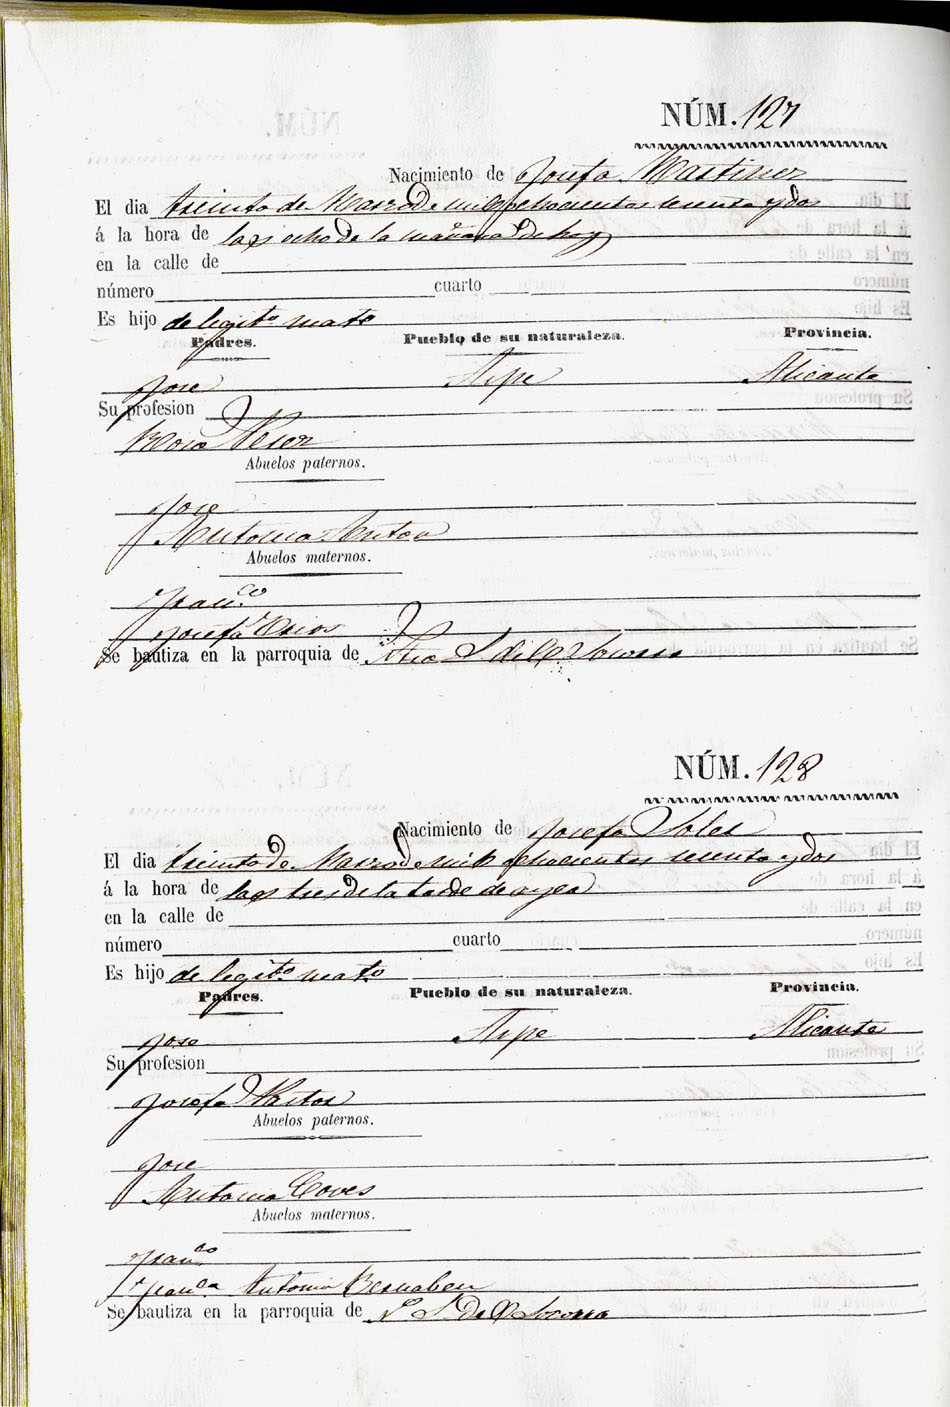 NÚM. 127
Nacimiento de Josefa Martinez
El dia treinta de Marzo de mil ochocientos sesenta y dos
á la hora de las ocho de la mañana de hoy
en la calle de
número cuarto
Es hijo de legito. mato.
Padres. Pueblo de su naturaleza. Provincia.
Jose Aspe Alicante
Su profesion
Rosa
Abuelos paternos.
Jose
Antonia Anton
Abuelos maternos.
Franco.
Josefa
Se bautiza en la parroquia de Ntra S. del Socorro
NÚM. 128
Nacimiento de Josefa Soler
El dia treinta de Marzo de mil ochocientos sesenta y dos
á la hora de las tres de la tarde de ayer
en la calle de
número cuarto
Es hijo de legito. mato.
Padres. Pueblo de su naturaleza. Provincia.
Jose Aspe Alicante
Su profesion
Josefa
Abuelos paternos.
Jose
Antonia Coves
Abuelos maternos.
Franco.
Franca Antonia Bernabeu
Se bautiza en la parroquia de N. S. del Socorro